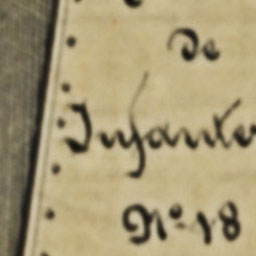 de
Infante
Nº 18